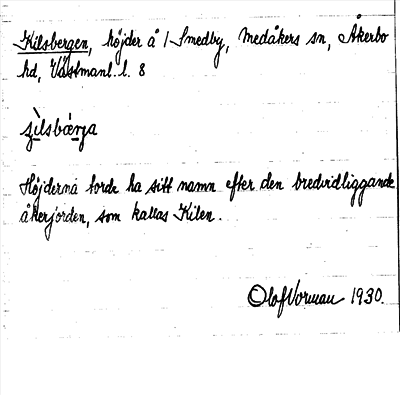 Kilsbergen, höjder å 1 Smedby, Medåkers sn, Åkerbo
hd, Västmanl. l. 8
Höjderna torde ha sitt namn efter den bredvidliggande
åkerjorden, som kallas Kilen.
Olof Vorman 1930.